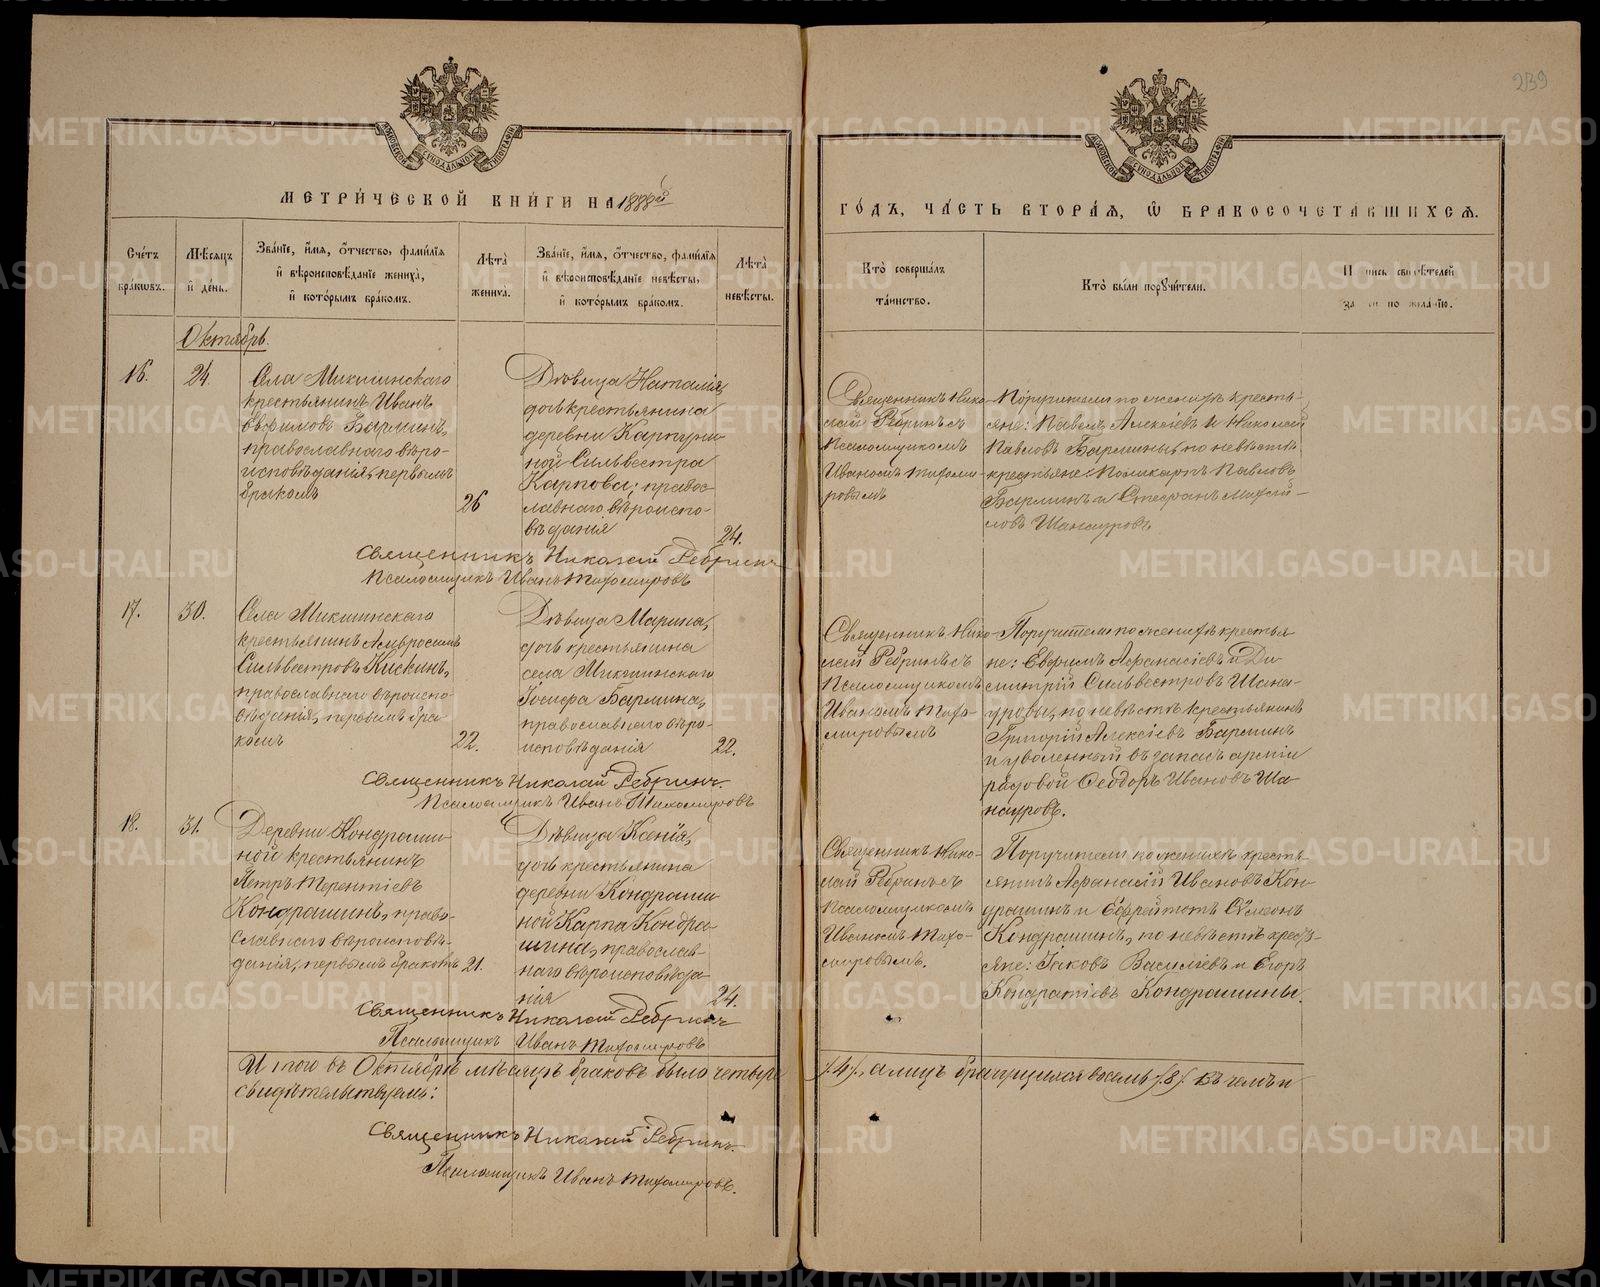 239
МЕТРИЧЕСКОЙ КНИГИ НА 1888й
ГОДЪ, ЧАСТЬ ВТОРАЯ, Ѡ БРАКОСОЧЕТАВШИХСЯ.
Счетъ
браковъ.
Мѣсяцъ
и день.
Званіе, имя, отчество, фамилія
и вѣроисповѣданіе жениха,
и которымъ бракомъ.
Лѣта
жениха.
Званіе, имя, отчество, фамилія
и вѣроисповѣданіе невѣсты,
и которымъ бракомъ.
Лѣта
невѣсты.
Кто совершалъ
таинство.
Кто были поручители.
Октябрь.
16.
24.
Села Микшинскаго
крестьянинъ Иванъ
Евфимовъ Бармин,
православнаго вѣро-
исповѣданія, первымъ
бракомъ
26
Дѣвица Наталія,
дочь крестьянина
деревни Карпуни
ной Сильвестра
Карпова; правос
лавнаго вѣроиспо-
вѣданія
24.
Священникъ Нико-
лай Ребринъ съ
Псаломщикомъ
Иваномъ Тихоми-
ровымъ
Поручители по женихѣ кресть-
яне: Павелъ Алексіевъ и Николай
Павловъ Бармины, по невѣстѣ
крестьяне: Поликарпъ Павловъ
Барминъ и Стефанъ Михай-
ловъ Шанауровъ
Священникъ Николай Ребринъ
Псаломщикъ Иванъ Тихомировъ
17.
30.
Села Микшинскаго
крестьянинъ Амвросій
Сильвестровъ
православнаго вѣроиспо-
вѣданія, первымъ бра
комъ
22.
Дѣвица Марина,
дочь крестьянина
села Микшинскаго
Іосифа Бармина,
православнаго вѣро-
исповѣданія
22.
Священникъ Нико-
лай Ребринъ съ
Псаломщикомъ
Иваномъ Тихо-
мировымъ
Поручители по женихѣ крестья
не: Евфимъ Афанасіевъ и Ди
митрій Сильвестровъ Шана-
уровы, по невѣстѣ крестьянинъ
Григорій Алексіевъ Барминъ
и уволенный въ запасъ арміи
рядовой Ѳеодоръ Ивановъ Ша-
науровъ.
Священникъ Николай Ребринъ.
Псаломщикъ Иванъ Тихомировъ
18.
31.
Деревни Кондраши
ной крестьянинъ
Петръ Терентіевъ
Кондрашинъ, право-
славнаго вѣроисповѣ-
данія, первымъ бракомъ
21.
Дѣвица Ксенія,
дочь крестьянина
деревни Кондраши
ной Карпа Кондра
шина, православ-
наго вѣроисповѣда
нія
24.
Священникъ Нико-
лай Ребринъ съ
Псаломщикомъ
Иваномъ Тихо-
мировымъ.
Поручители по женихѣ кресть-
янинъ Афанасій Ивановъ Кон-
драшинъ и Ефрейторъ Сѵмеонъ
Кондрашинъ, по невѣстѣ кресть-
яне: Іаковъ Василіевъ и Егоръ
Кондратіевъ Кондрашины.
Священникъ Николай Ребринъ
Псаломщикъ Иванъ Тихомировъ
Итого въ Октябрѣ мѣсяцѣ браковъ было четыре
/.4/., а лицъ брачущихся восемь /.8/. Въ чемъ и
свидѣтельствуемъ:
Священникъ Николай Ребринъ.
Псаломщикъ Иванъ Тихомировъ.
METRIKI.GASO-URAL.RU